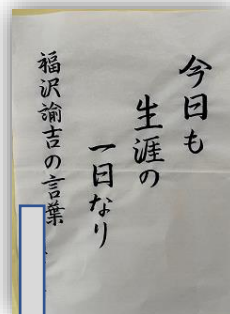 今日も
生涯の
一日なり
福沢諭吉の言葉